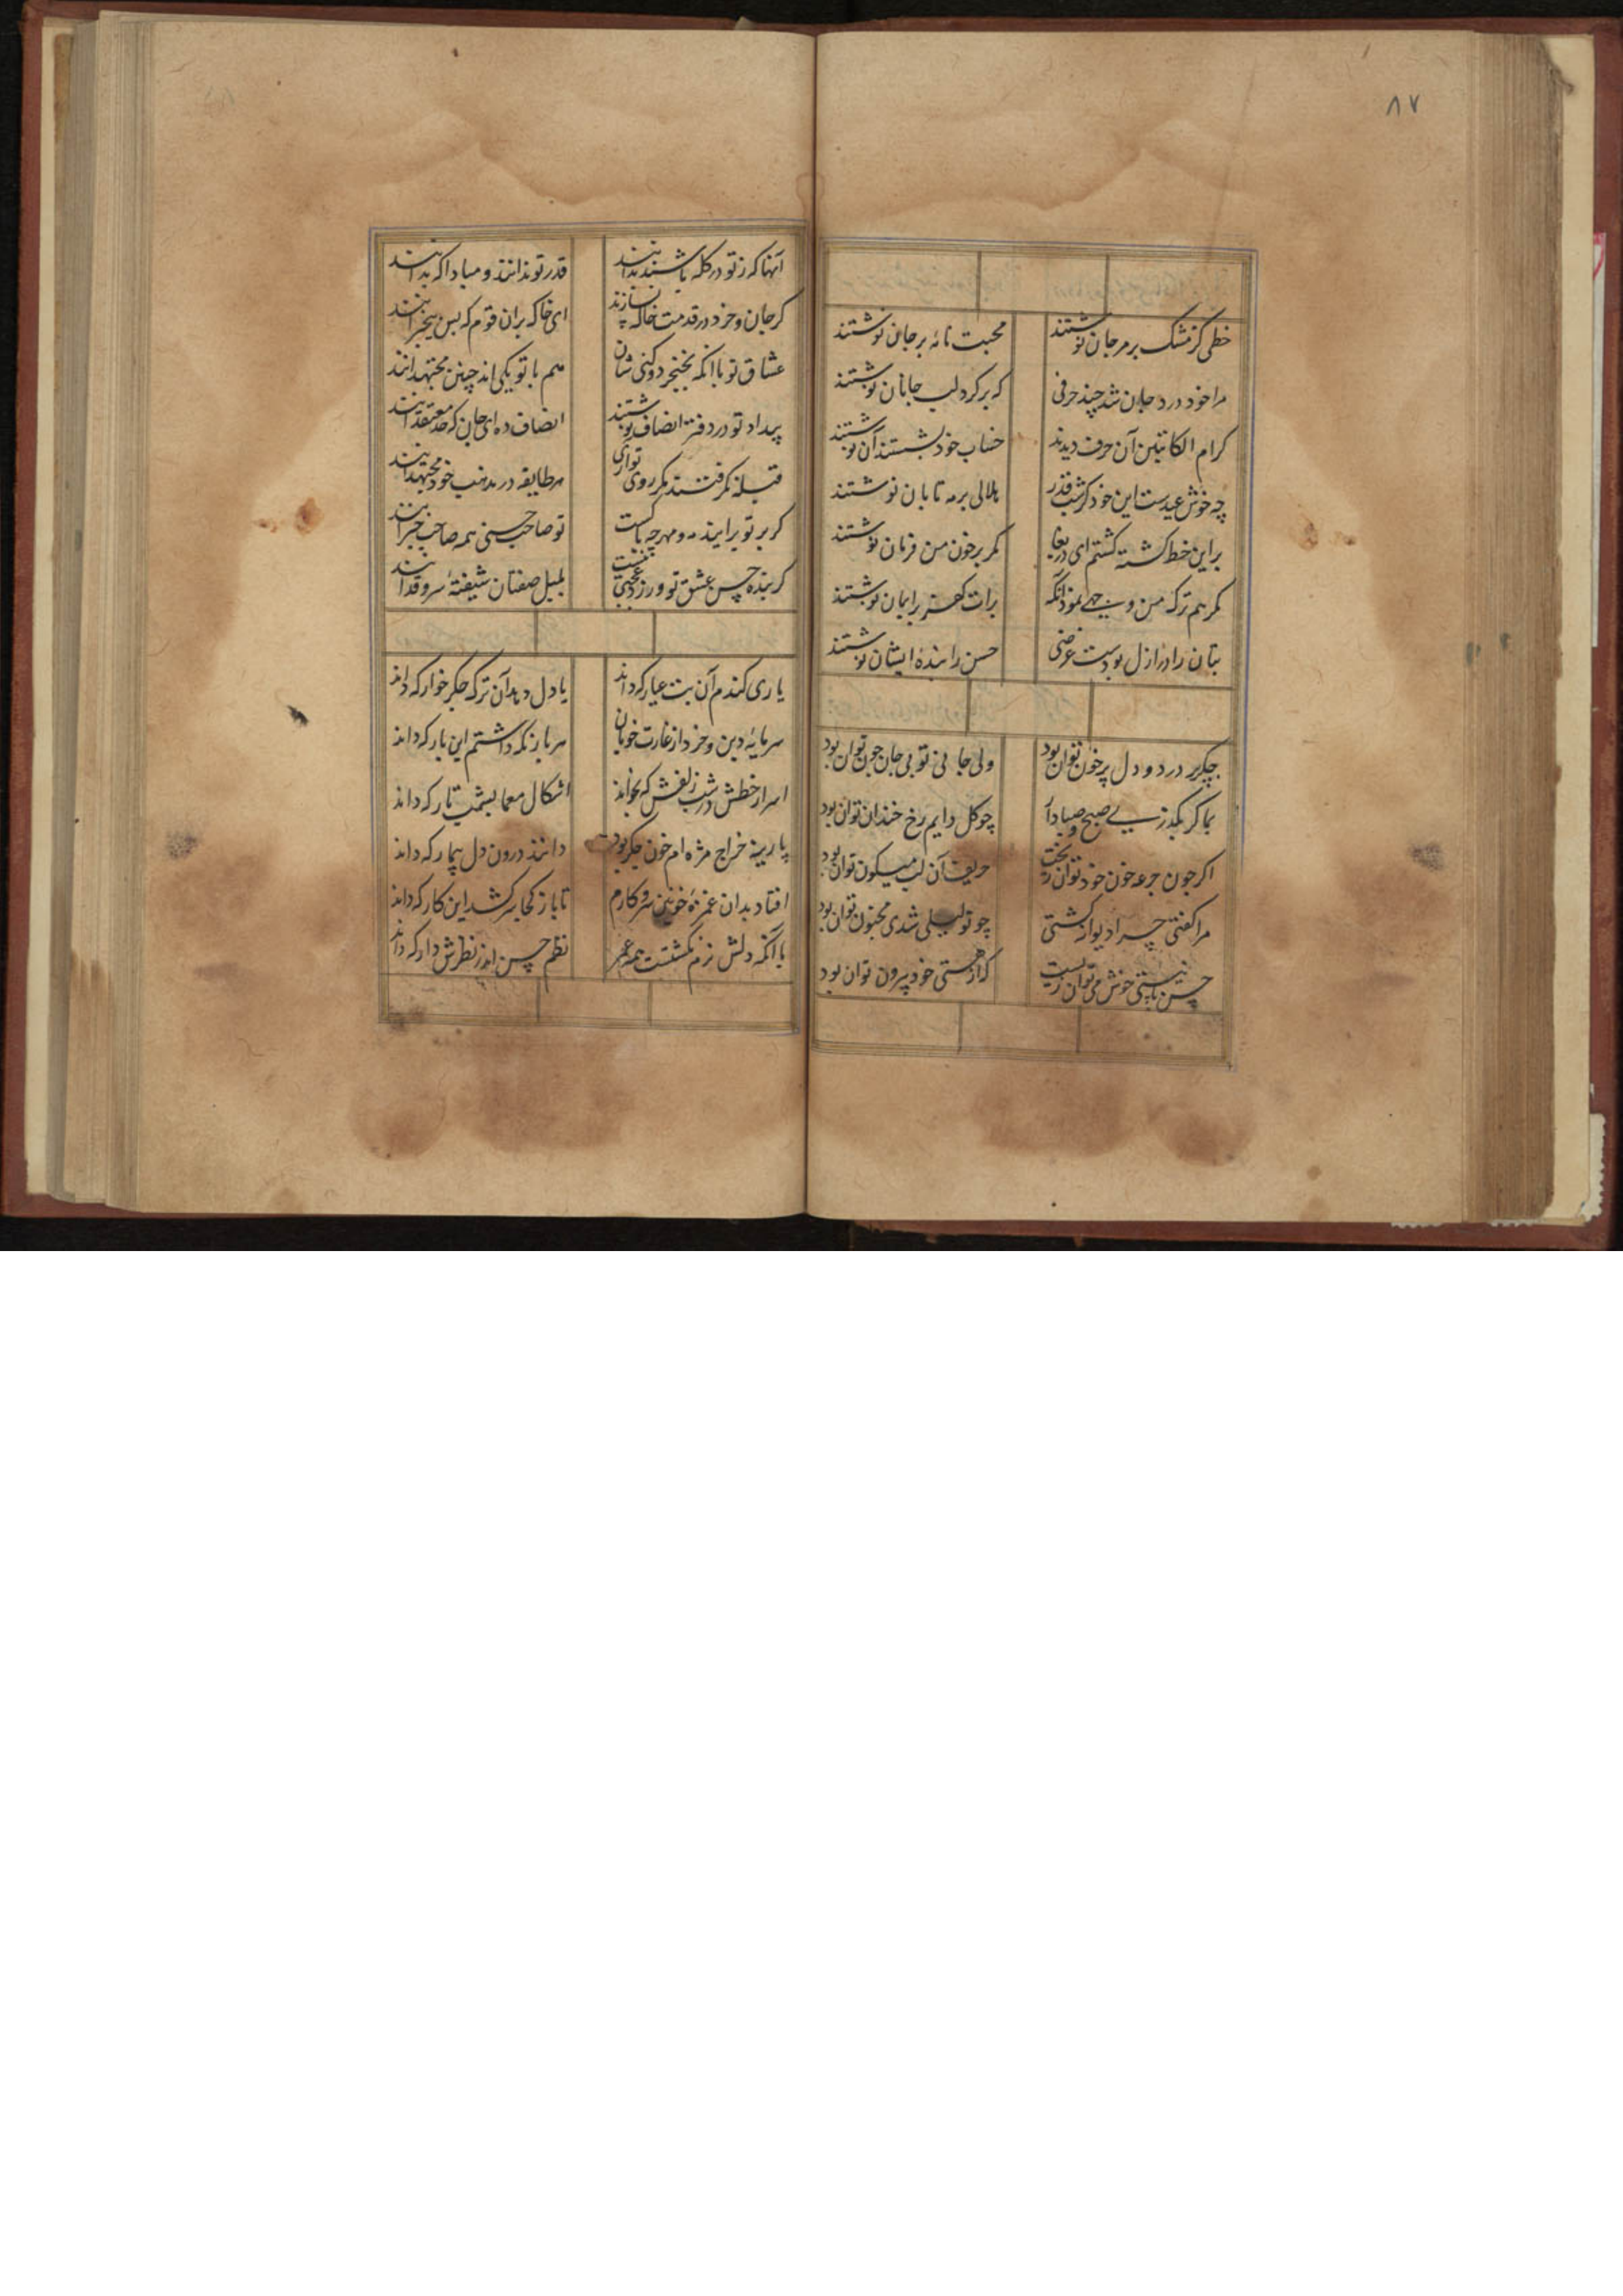 ۸۷
خطی کز مشک بر مرجان نوشتند
محبت نامه بر جان نوشتند
مرا خود درد جان شد چند حرفی
که بر گرد لب جانان نوشتند
کرام الکاتبین آن حرف دیدند
خود بشستند آن نوشتند
چه خوش عیدست این خود کز شب قدر
هلالی بر مه تابان نوشتند
براین خط کشته کشتم ای دریغا
مگر بر خون من فرمان نوشتند
مگر هم ترک من
برات کفر بر ایمان نوشتند
بتان را در ازل بودست عرضی
حسن را بنده ایشان نوشتند
جگر پر درد و دل پر خون توان بود
ولی جانی تو بی جان چون توان بود
بما گر بگذرد صبح و صبا
چو گل دایم رخ خندان توان بود
اگر چون جرعه خون خود توان ریخت
حریف آن لب میگون توان بود
مرا گفتی چرا دیوانه گشتی
چو تو لیلی شدی مجنون توان بود
حسن با نیستی خوش می توان زیست
گر از هستی خود بیرون توان بود
آنها که ز تو در گله باشند بدانند
قدر تو ندانند و مبادا که بدانند
گر جان و خرد در قدمت خاک نسازند
ای خاک بران قوم که بس بیخبرانند
عشاق تو با آنکه بخنجر دو کنی شان
هم با تو یکی اند چنین مجتهدانند
بیداد تو در دفتر انصاف نوشتند
انصاف ده ای جان که چه معتقدانند
قبله نگرفتند مگر روی تو آری
هر طایفه در مذهب خود مجتهدانند
گر بر تو برایند مه و مهر چه باکست
تو صاحب حسنی همه صاحب خبرانند
گر بنده حسن عشق تو ورزد عجبی نیست
بلبل صفتان شیفته سرو قدانند
یاری کندم آن بت عیار که داند
یا دل دهد آن ترک جگر خوار که داند
سرمایه دین و خرد از غارت خوبان
هر بار نگه داشتم این بار که داند
اسرار خطش در شب زلفش که بخواند
اشکال معما بشب تار که داند
پارینه خراج مژه ام خون جگر بود
دانند درون دل بیمار که داند
افتاد بدان غمزه خونین سر و کارم
تا باز کجا سر کشد این کار که داند
با آنکه دلش نرم نگشتست همه عمر
نظم حسن اندر نظرش دار که داند